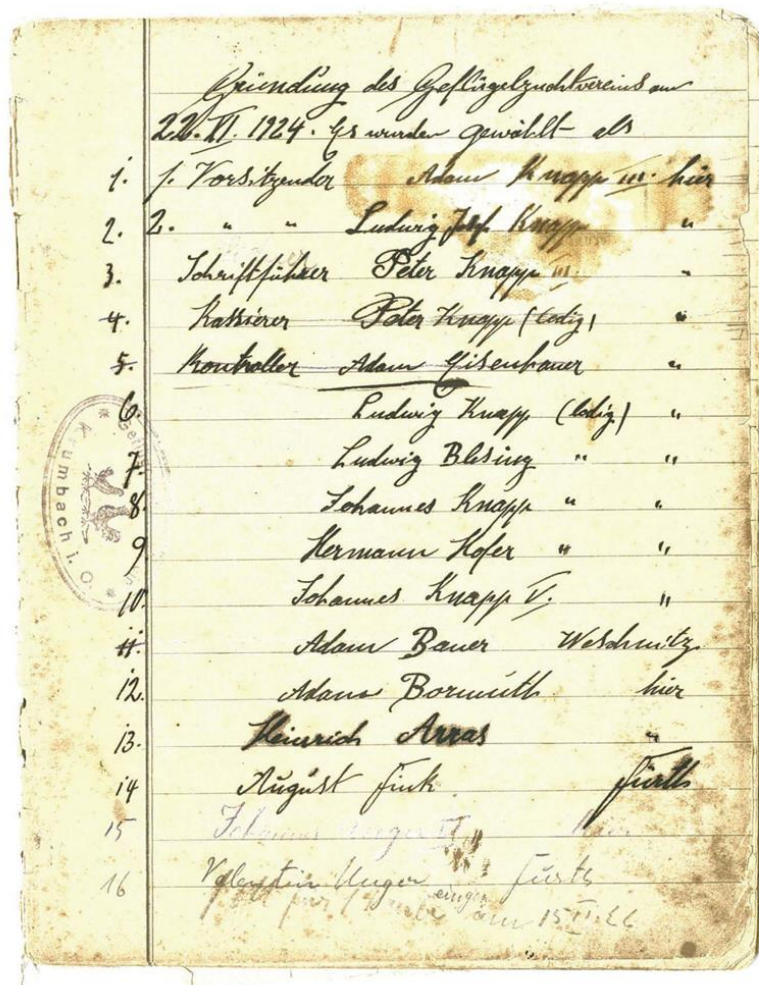 Gründung des Geflügelzuchtvereins am
22. VI. 1924. Es wurden gewählt als
1. 1. Vorsitzender Adam Knapp III. hier
2. 2. " " Ludwig Jos. Knapp "
3. Schriftführer Peter Knapp III. "
4. Kassierer Peter Knapp (ledig) "
5. Kontroller Adam Eisenhauer "
6. Ludwig Knapp (ledig) "
7. Ludwig Blesing " "
8. Johannes Knapp " "
9 Hermann Hofer " "
10. Johannes Knapp V. "
11. Adam Bauer Weschnitz
12. Adam Bormuth hier
13. Heinrich Arras "
14 August Fink Fürth
15 Johannes
16 Valentin Unger Fürth
am 15
Krumbach i. O.